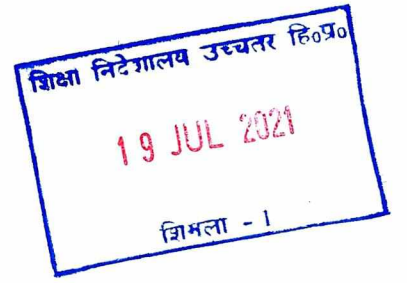 शिक्षा निदेशालय उच्चतर हि०प्र०
19 JUL 2021
शिमला - 1